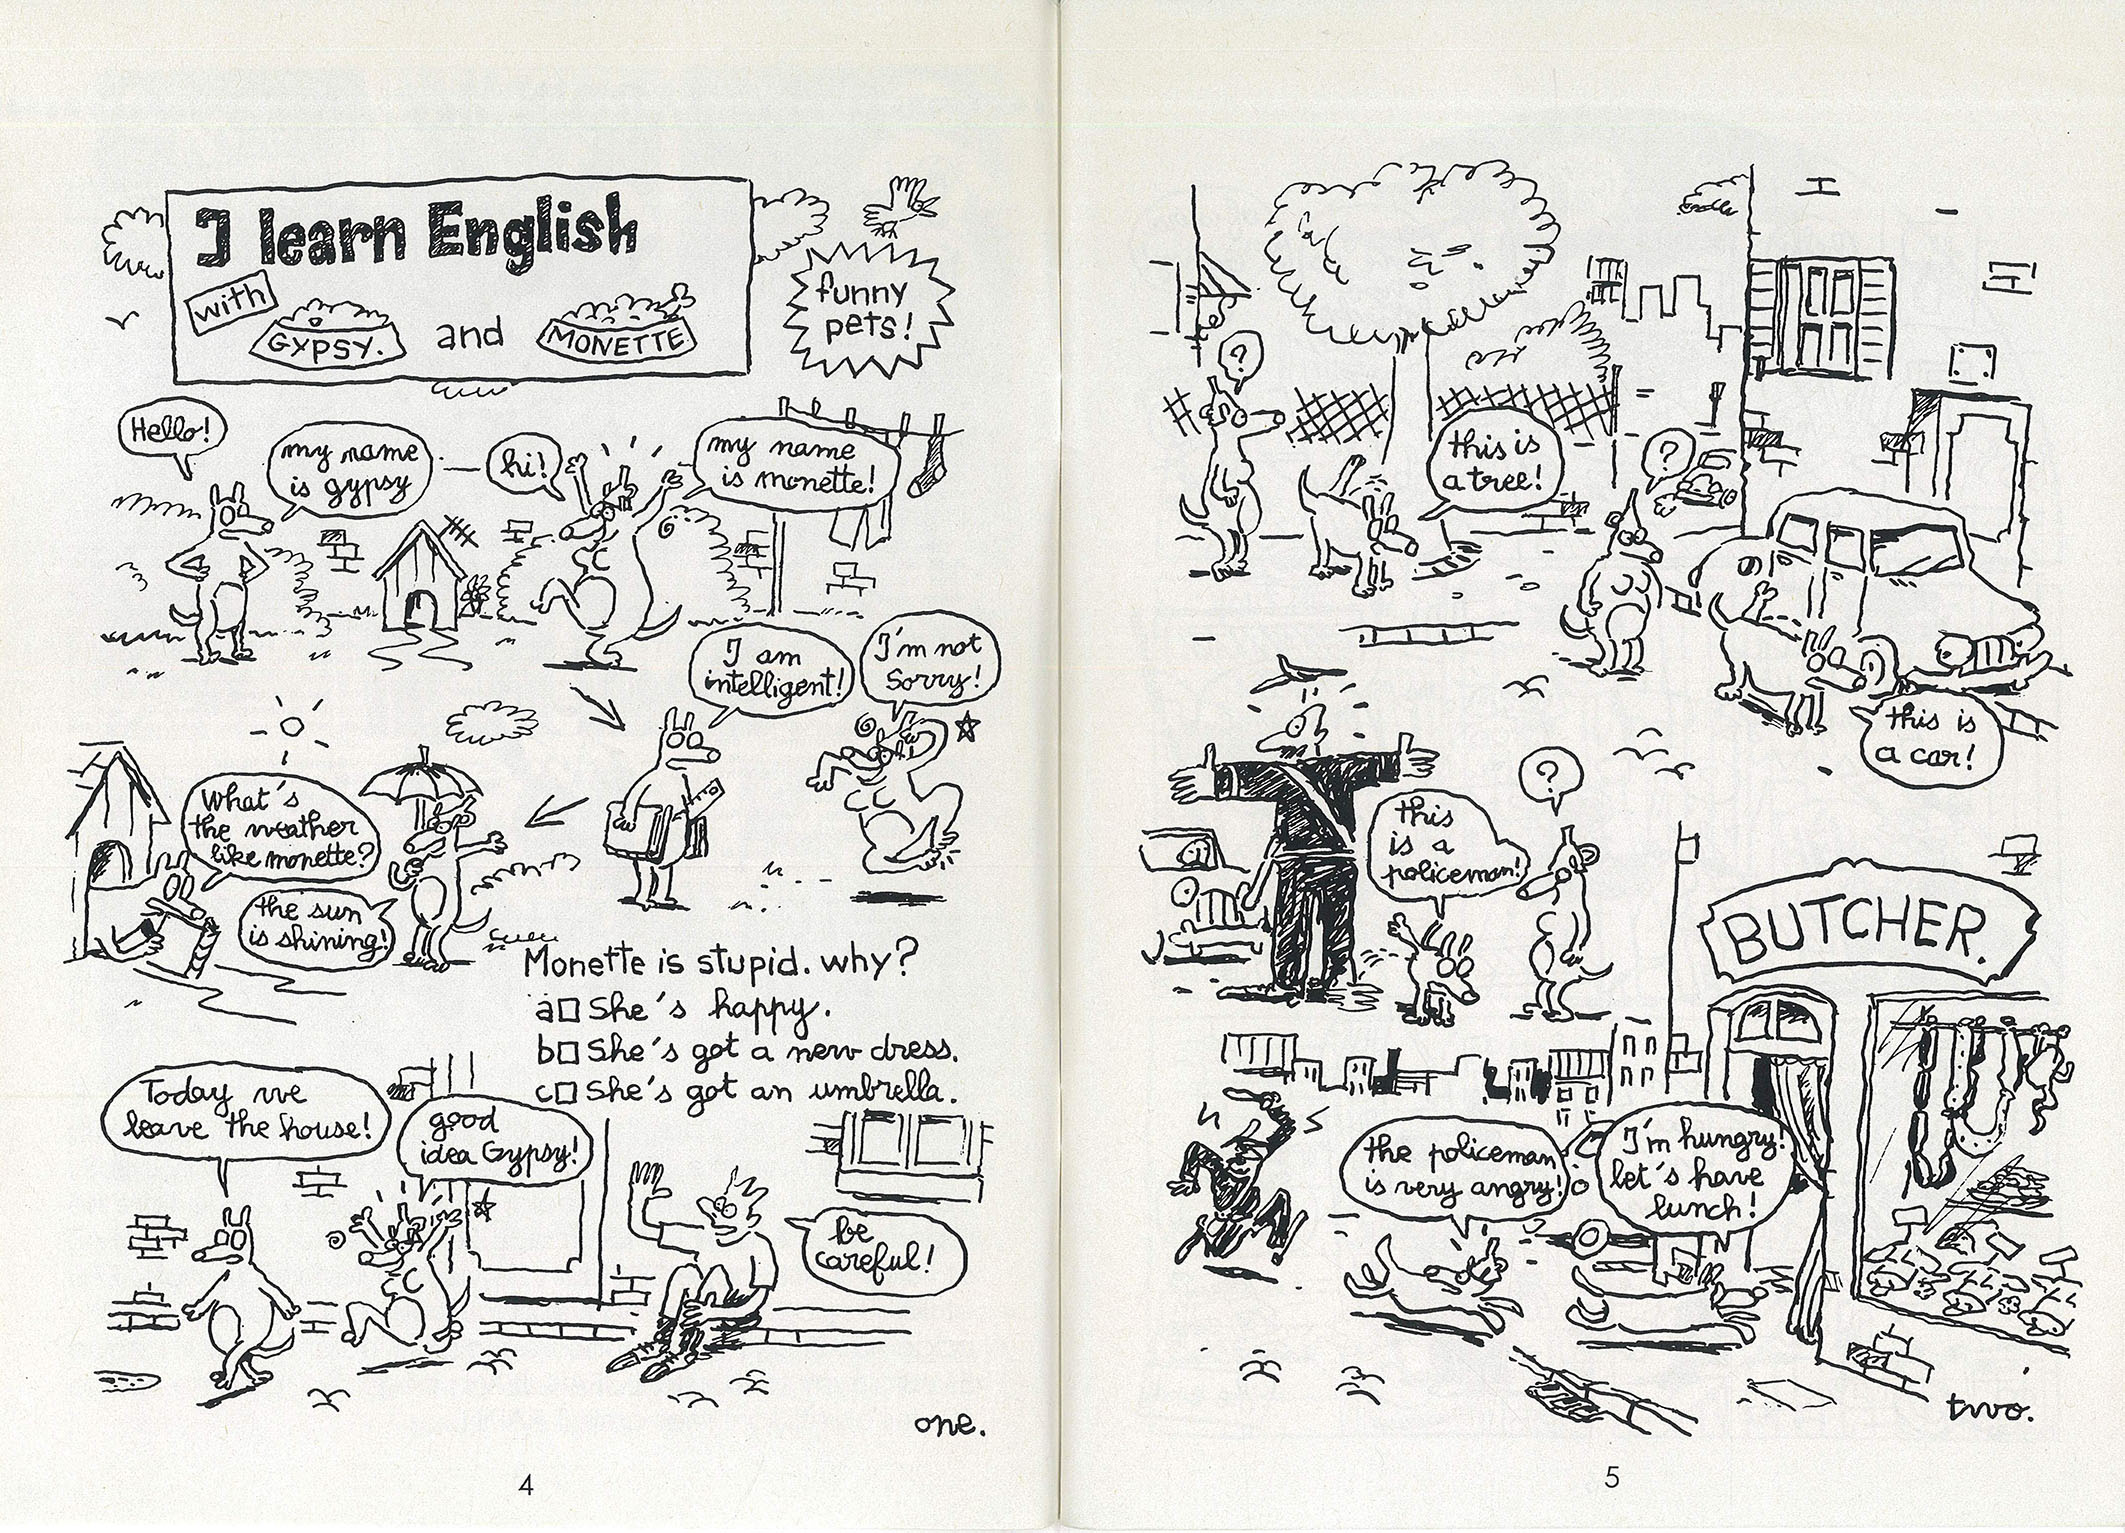 I learn English
with
GYPSY. and MONETTE
funny
pets!
Hello!
my name
is gypsy
hi!
my name
is monette!
I am
intelligent!
I'm not
Sorry!
What's
the weather
like monette?
the sun
is shining!
Monette is stupid. why?
a □ She's happy.
b □ She's got a new dress.
c □ She's got an umbrella.
Today we
leave the house!
good
idea Gypsy!
be
careful!
one.
4
?
this is
a tree!
?
this is
a car!
this
is a
policeman!
?
BUTCHER.
the policeman
is very angry!
I'm hungry!
let's have
lunch!
two.
5